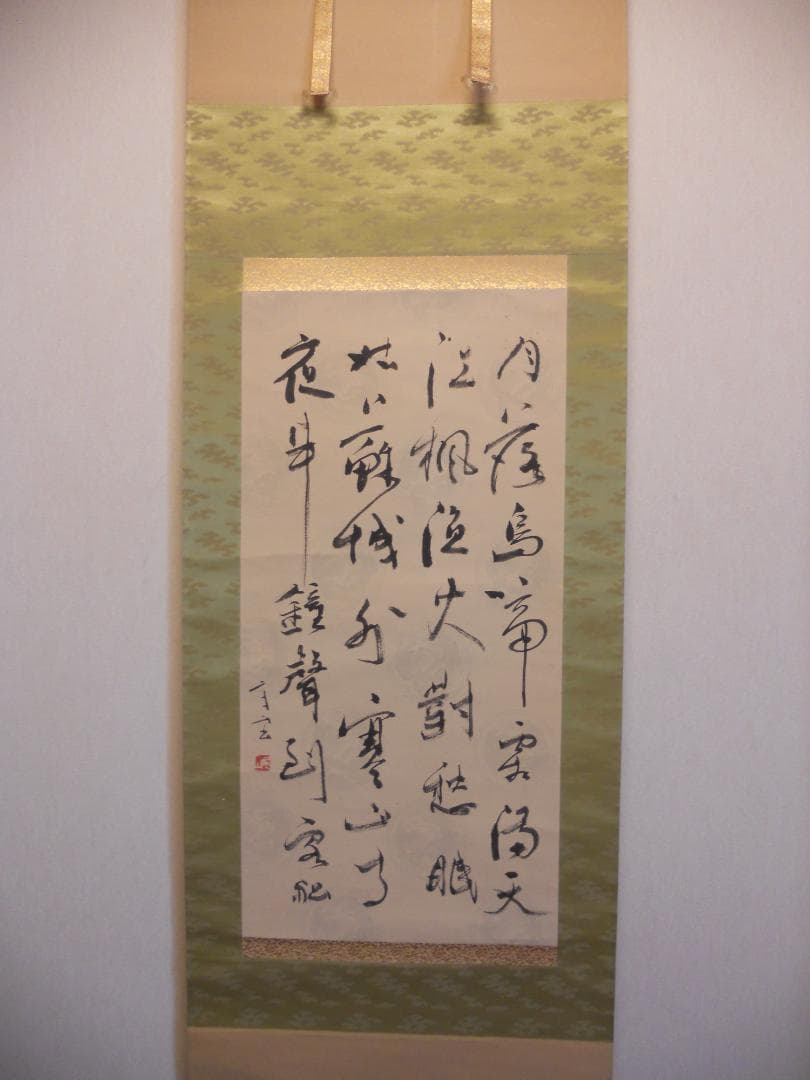 月落烏啼霜満天
江楓漁火對愁眠
姑蘇城外寒山寺
夜半鐘聲到客船